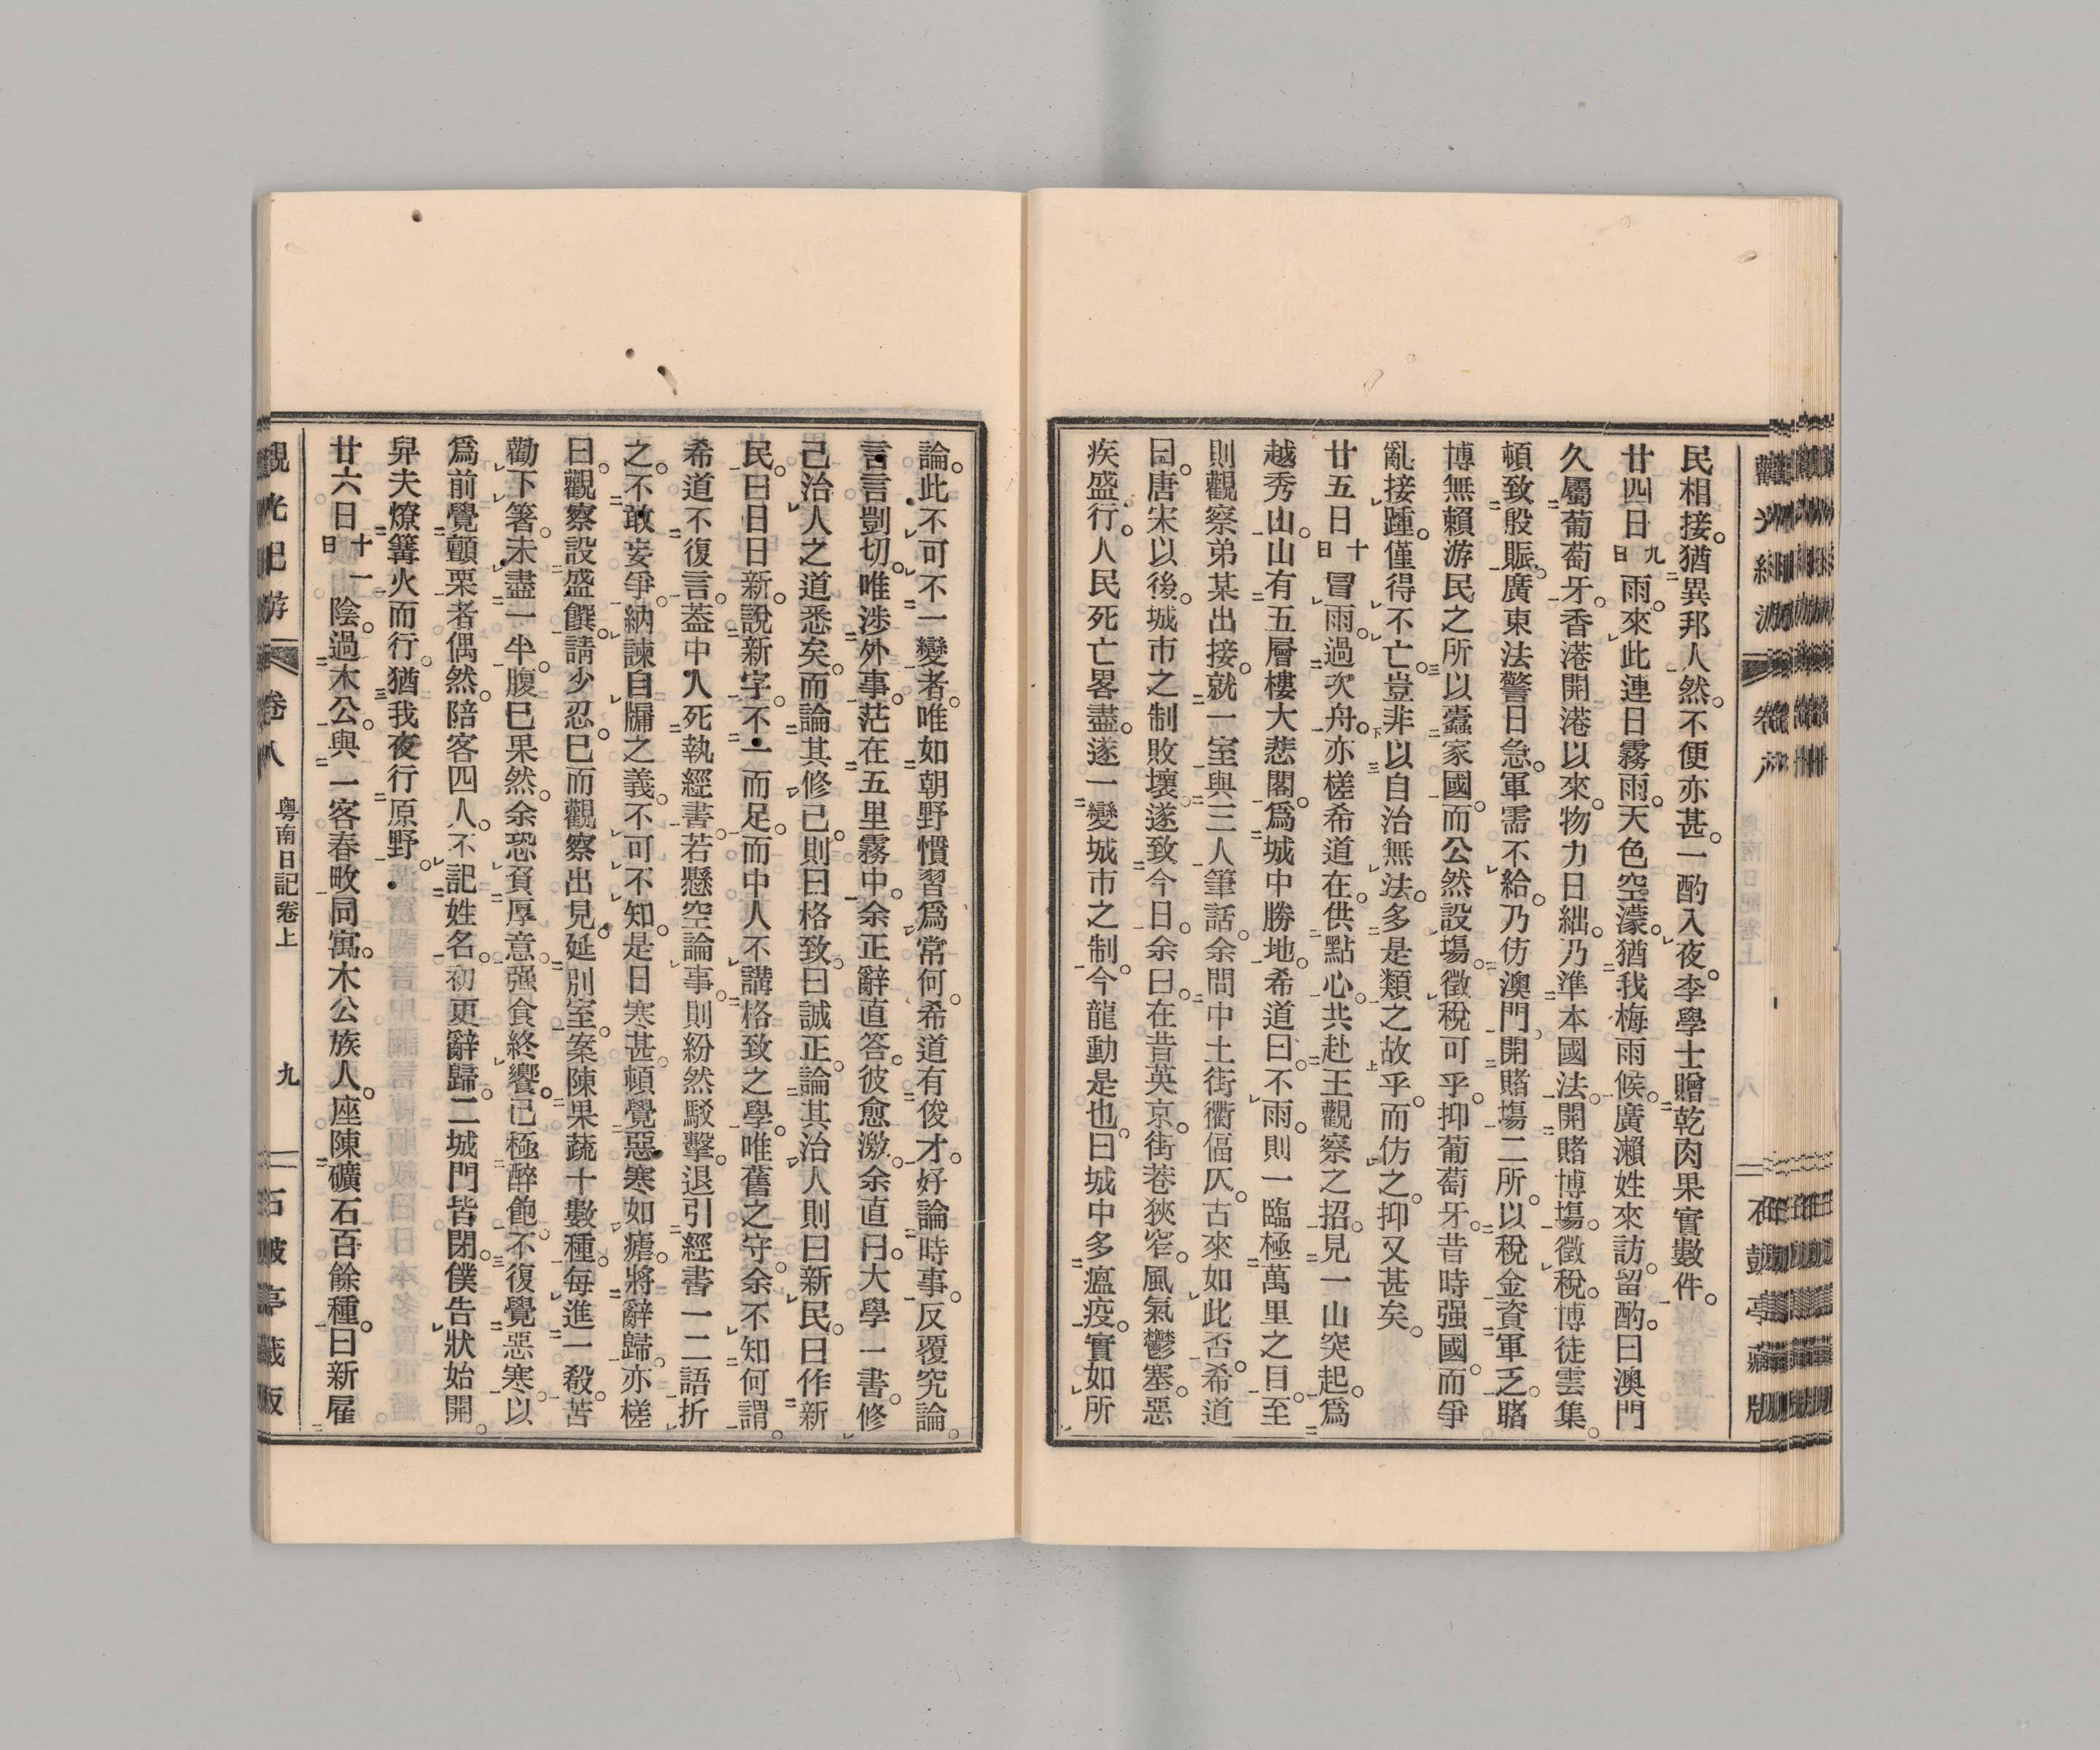 民相接。猶異邦人然。不便亦甚。一酌入夜。李學士贈乾肉果實數件。
廿四日九日雨。來此連日霧雨。天色空濛。猶我梅雨候。廣瀨姓來訪。留酌。曰澳門
久屬葡萄牙。香港開港以來。物力日絀。乃準本國法。開賭博塲。徵稅。博徒雲集。
頓致殷賑。廣東法警日急。軍需不給。乃仿澳門。開賭塲二所。以稅金資軍乏。賭
博無賴游民之所以蠹家國。而公然設塲。徵稅可乎。抑葡萄牙。昔時强國。而爭
亂接踵。僅得不亡。豈非以自治無法。多是類之故乎。而仿之。抑又甚矣。
廿五日十日冒雨。過次舟。亦槎希道在。供點心。共赴王觀察之招。見一山突起。爲
越秀山。山有五層樓大悲閣。爲城中勝地。希道曰。不雨。則一臨極萬里之目。至
則觀察弟某出接。就一室與三人筆話。余問中土街衢偪仄。古來如此否。希道
曰。唐宋以後。城市之制敗壞。遂致今日。余曰。在昔英京。街巷狹窄。風氣鬱塞。惡
疾盛行。人民死亡畧盡。遂一變城市之制。今龍動是也。曰城中多瘟疫。實如所
論。此不可不一變者。唯如朝野慣習爲常何。希道有俊才。好論時事。反覆究論。
言言剴切。唯涉外事。茫在五里霧中。余正辭直答。彼愈激。余直曰。大學一書。修
己治人之道悉矣。而論其修己。則曰格致。曰誠正。論其治人。則曰新民。曰作新
民。曰日日新。說新字。不一而足。而中人不講格致之學。唯舊之守。余不知何謂。
希道不復言。蓋中人死執經書。若懸空論事。則紛然駁擊。退引經書一二語折
之。不敢妄爭。納諫自牖之義。不可不知。是日寒甚。頓覺惡寒如瘧。將辭歸。亦槎
曰。觀察設盛饌。請少忍。已而觀察出見。延別室。案陳果蔬十數種。每進一殽。苦
勸下箸。未盡一半。腹已果然。余恐負厚意。强食終饗。已極醉飽。不復覺惡寒。以
爲前覺顫栗者偶然。陪客四人。不記姓名。初更辭歸。二城門皆閉。僕告狀始開。
舁夫燎篝火而行。猶我夜行原野。
廿六日十一日陰。過木公。與一客春畋同寓。木公族人。座陳礦石百餘種。曰新雇
觀光紀游 卷八 粤南日記卷上 九 石皷亭藏版